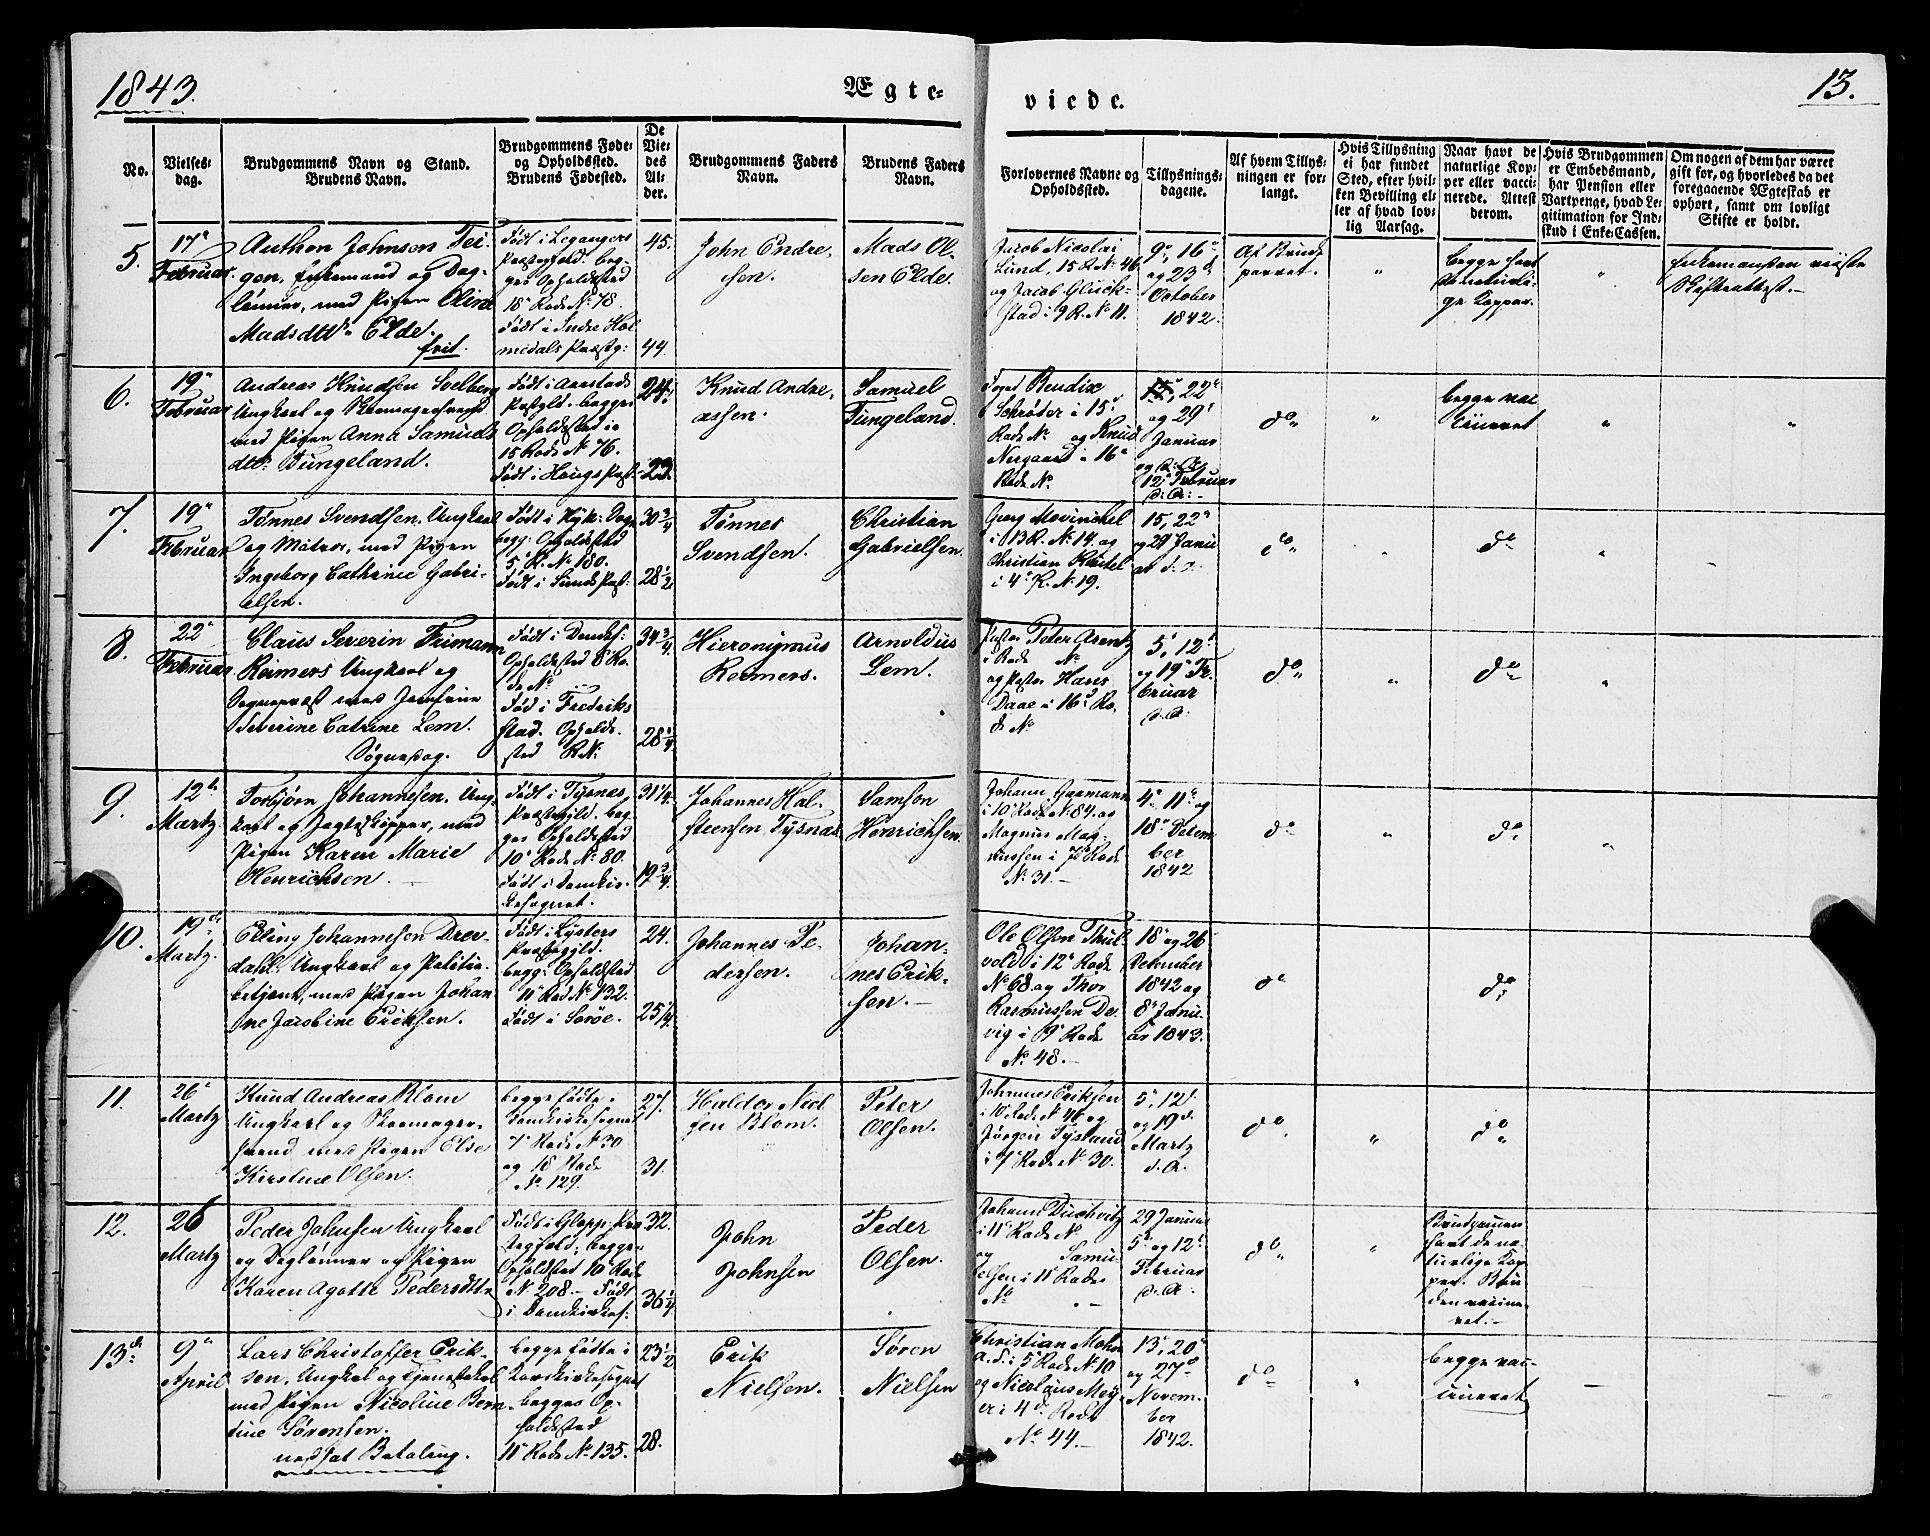 1843.
Ægte-
viede.
13.
No.
Vielses-
dag.
Brudgommens Navn og Stand.
Brudens Navn.
Brudgommens Føde-
og Opholdssted.
Brudens Fødested.
De
Vie-
des
Al-
der.
Brudgommens Faders
Navn.
Brudens Faders
Navn.
Forlovernes Navne og
Opholdssted.
Tillysnings-
dagene.
Af hvem Tillys-
ningen er for-
langt.
Hvis Tillysning
ei har fundet
Sted, efter hvil-
ken Bevilling el-
ler af hvad lov-
lig Aarsag.
Naar havt de
naturlige Kop-
per eller vacci-
nerede. Attest
derom.
Hvis Brudgommen
er Embedsmand,
har Pension eller
Vartpenge, hvad Le-
gitimation for Ind-
skud i Enke-Cassen.
Om nogen af dem har været
gift før, og hvorledes da det
foregaaende Ægteskab er
ophørt, samt om lovligt
Skifte er holdt.
5.
17
Februar.
Anthon Johnsen Tei-
gen, Enkemand og Dag-
lønner, med Pigen Oline
Madsdtt Elde.
frit.
Født i Legangers
Præstegjeld. beg-
ges Opholdssted
18 Rode No 78.
Født i Indre Hol-
medals Præstg:
45.
44.
John Endre-
sen.
Mads Ol-
sen Elde.
Jacob Nicolai
Lund, 15 R. No 46
og Jacob Gluck-
stad i 9 R. No 11.
9, 16
og 23
October
1842.
Af Brude-
parret.
"
begge havt
de naturli-
ge Kopper.
"
Enkemanden viiste
Skifteattest.
6.
19
Februar
Andreas Knudsen Solberg
Ungkarl og Skomagersvend
med Pigen Anna Samuels
dtt Tungeland.
Født i Aarstads
Præstgld. begges
Opholdssted i
15 Rode No 76.
Født i Hougs Præst-
24.
23.
Knud Andre-
assen.
Samuel
Tungeland.
Bendix
Schrøder i 15
Rode No og Knud
Nergaard i 16
Rode No
15, 22
og 29
Januar
12 Februar
d. A.
do
"
begge vac-
cineret
"
"
7.
19
Februar
Tønnes Svendsen, Ungkarl
og Matros, med Pigen
Ingeborg Cathrine Gabri-
elsen.
begg: Opholdssted
5 R. No 180.
Født i Sunds Præst:
30 3/4
28 1/2
Tønnes
Svendsen.
Christian
Gabrielsen.
Georg Mowinckel
i 13 R. No 14. og
Christian
i 4 R. No 19.
15, 22
og 29 Janu
ar d. A.
do
"
do
"
8.
22
Februar
Claus Severin Frimann
Reimers Ungkarl og
Sognepræst med Jomfrue
Severine Catrine Lem.
Søgnedag.
Født i Domkes:
Opholdssted 8 Ro-
de No
Fød i Frederiks
stad. Opholds-
sted R. No:
34 3/4
28 1/4
Hieronymus
Reimers.
Arnoldus
Lem.
Pastor Peter Arentz
i Rode No
og Pastor Hans
Daae i 16 Ro-
de No
5, 12
og 19 Fe-
bruar
d. A.
do
"
do
"
9.
12
Martz
Torbjørn Johannesen. Ung-
karl og Jagtskipper, med
Pigen Karen Marie
Henrichsen.
Født i Tysnæs
Præstegjld. beg-
ges Opholdssted
10 Rode No 80.
Født i Domkir-
kesognet.
31 1/4
19 3/4
Johannes Hal-
steensen Tysnæs
Samson
Henrichsen.
Johann Gaarmann
i 10 Rode No 84. og
Magnus Mag-
nussen i 7 Rode
No 31.
4, 11 og
18 Decem
ber
1842
do
"
do
"
10.
19
Martz.
Elling Johannesen Drev-
dahl. Ungkarl og Politie-
betjent, med Pigen Johan
ne Jacobine Eriksen.
Født i Lysters
Præstegjld.
begg: Opholdssted
11 Rod No 132.
Født i Sorøe.
24.
25 1/4
Johannes Pe-
dersen.
Johan-
nes Erik-
sen.
Ole Olsen Thuil-
vold i 12 Rode
No 68. og Thor
Rasmussen De-
vig i 19 Rode
No 48.
18 og 26
December
1842 og
8 Janu-
ar 1843.
do
do
11.
26
Martz
Knud Andreas Blom
Ungkarl og Skomager-
svend med Pigen Else
Kirstine Olsen.
begge fødte i
Domkirkesognet
7 Rode No 30
og 18 Rode
No 129.
27.
31.
Haldor Niel
sen Blom.
Peter
Olsen.
Johannes Eriksen
i 10 Rode No 46 og
Jørgen Tysland
i 7 Rode No 30.
5, 12
og 19
Martz
d. A.
do
"
do
12.
26
Martz
Peder Johnsen Ungkarl
og Daglønner og Pigen
Karen Agathe Pedersdtt
Født i Glopp: Præ
stegjeld, begges
Opholdssted 10 Rode
No 208. Født
i Domkirkes:
32.
36 1/4
John
Johnsen
Peder
Olsen.
Johann Duchvitz
i 11 Rode No
og Samu
elsen i 11 Rode
No
29 Januar
5 og 12
Februar
d. A.
do
"
Brudgomen
havt de na-
turlige Kop-
per. Bru-
den vaccine-
ret.
13
9
April
Lars Christoffer Erik-
sen, Ungkarl og Tjenestekarl
med Pigen Nicoline Bern-
tine Sørensen.
nedsat Betaling.
begge fødte i
Korskirkesognet
begges Op-
holdssted
11 Rode No 135.
23 1/2
28.
Erik
Nielsen.
Søren
Nielsen
Christian Mohn
i 5 Rode No 10
og Nicolaus Mey-
er i 4 Rode
No 44.
13, 20
og 27
Novem-
ber
1842.
do
"
begge vac-
cineret